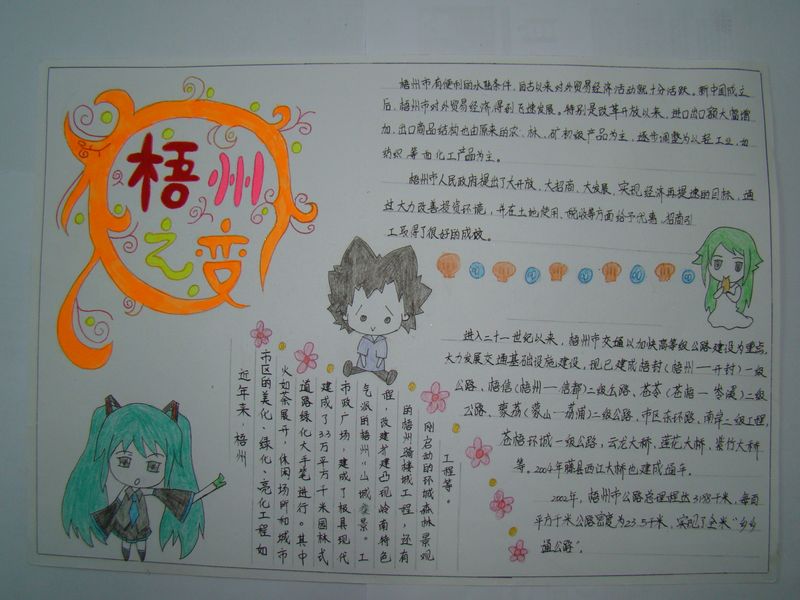 梧州
之变
梧州市有便利的水陆条件,自古以来对外贸易经济活动就十分活跃。新中国成立
后,梧州市对外贸易经济得到飞速发展。特别是改革开放以来,进口出口额大幅增
加,出口商品结构也由原来的农、林、矿初级产品为主,逐步调整为以轻工业、
纺织等 化工产品为主。
梧州市人民政府提出了大开放、大招商、大发展、实现经济再提速的目标,通
过大力改善投资环境,并在土地使用、税收等方面给予优惠,招商引
工取得了很好的成效。
近年来,梧州
市区的美化、绿化、亮化工程如
火如荼展开,休闲场所和城市
道路绿化大手笔进行。其中
建成了3.3万平方千米园林式
市政广场,建成了极具现代
气派的梧州"山城夜景。工
程,改建扩建凸现岭南特色
的梧州骑楼城工程,还有
刚启动的环城森林景观
工程等。
进入二十一世纪以来,梧州市交通以加快高等级公路建设为重点,
大力发展交通基础设施建设,现已建成梧封(梧州—开封)一级
公路、梧信(梧州—信都)二级公路、苍苓(苍梧—岑溪)二级
公路、蒙荔(蒙山—荔浦)二级公路、市区东环路、南岸二级工程,
苍梧环城一级公路,云龙大桥,莲花大桥、紫竹大桥
等。2004年藤县西江大桥也建成通车。
2002年,梧州市公路总里程达3198千米,每百
平方千米公路密度为23.5千米,实现了全米"乡乡
通公路"。